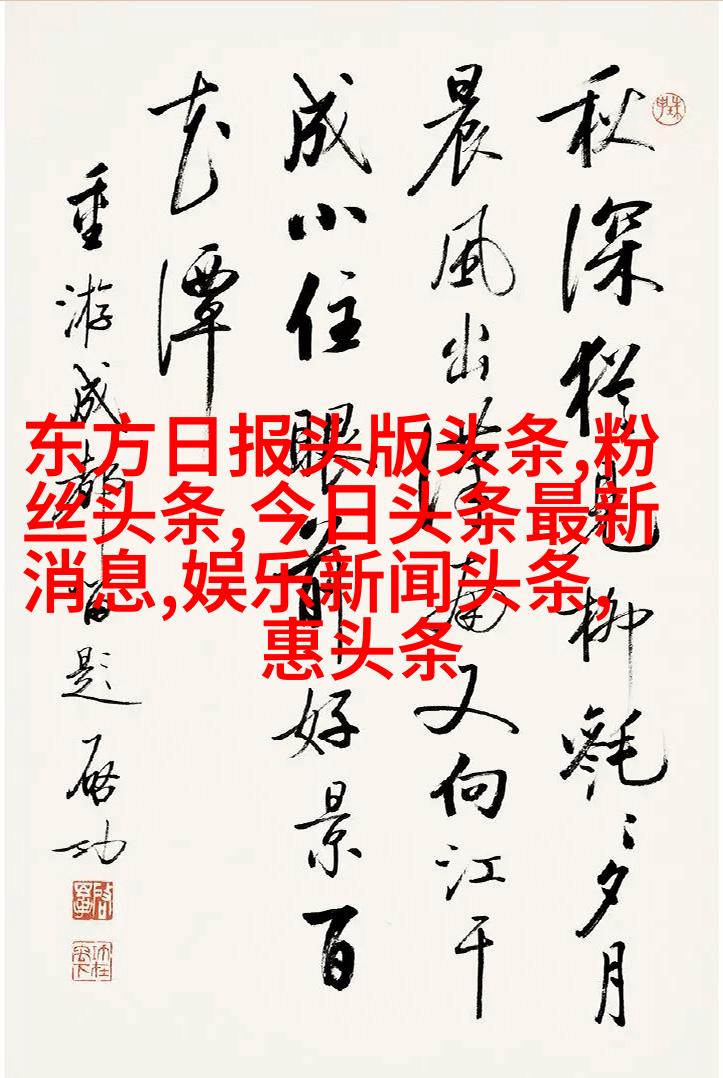 秋深猶見柳毿〻夕月
晨風出漢南又向江干
成小住眼前好景百
花潭
重游成都留題 啓功
东方日报头版头条,粉
丝头条,今日头条最新
消息,娱乐新闻头条,
惠头条